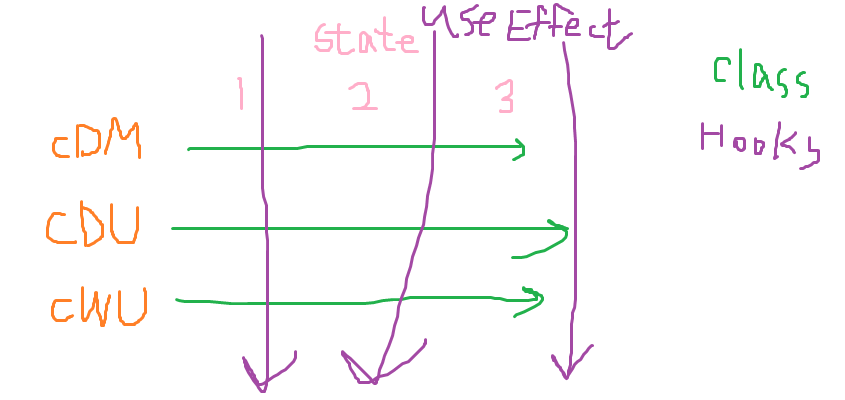 state useEffect
1 2 3
class
Hooks
cDM
CDU
cWU